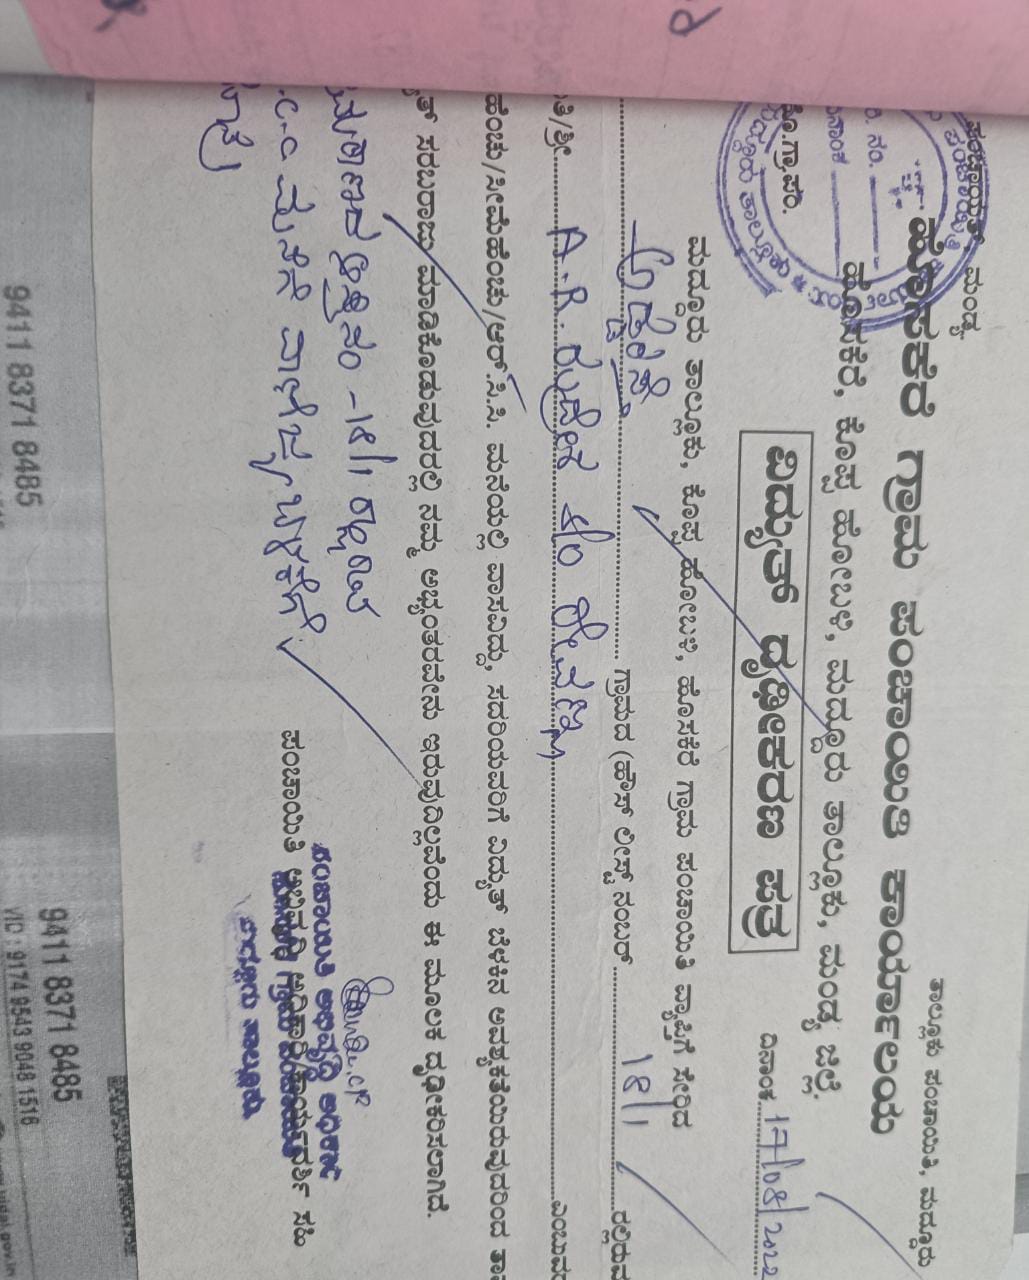 ಪಂಚಾಯತ್ ಮಂಡ್ಯ. ತಾಲ್ಲೂಕು ಪಂಚಾಯಿತಿ, ಮದ್ದೂರು
ಹೊಸಕೆರೆ ಗ್ರಾಮ ಪಂಚಾಯಿತಿ ಕಾರ್ಯಾಲಯ
ಹೊಸಕೆರೆ, ಕೊಪ್ಪ ಹೋಬಳಿ, ಮದ್ದೂರು ತಾಲ್ಲೂಕು, ಮಂಡ್ಯ ಜಿಲ್ಲೆ.
ಹೊ.ಗ್ರಾ.ಪಂ. ದಿನಾಂಕ 17/08/2022
ವಿದ್ಯುತ್ ದೃಢೀಕರಣ ಪತ್ರ
ಮದ್ದೂರು ತಾಲ್ಲೂಕು, ಕೊಪ್ಪ ಹೋಬಳಿ, ಹೊಸಕೆರೆ ಗ್ರಾಮ ಪಂಚಾಯಿತಿ ವ್ಯಾಪ್ತಿಗೆ ಸೇರಿದ
ಗ್ರಾಮದ (ಹೌಸ್ ಲೀಸ್ಟ್ ನಂಬರ್ 18/1 ರಲ್ಲಿರುವ
ತಿ/ಶ್ರೀ A.R. ರುದ್ರೇಶ S/o ರೇವಣ್ಣ ಎಂಬುವ
ಹೆಂಚು/ಸೀಮೆಹೆಂಚು/ಆರ್.ಸಿ.ಸಿ. ಮನೆಯಲ್ಲಿ ವಾಸವಿದ್ದು, ಸದರಿಯವರಿಗೆ ವಿದ್ಯುತ್ ಬೆಳಕಿನ ಅವಶ್ಯಕತೆಯಿರುವುದರಿಂದ
ತ್ ಸರಬರಾಜು ಮಾಡಿಕೊಡುವುದರಲ್ಲಿ ನಮ್ಮ ಅಭ್ಯಂತರವೇನು ಇರುವುದಿಲ್ಲವೆಂದು ಈ ಮೂಲಕ ದೃಢೀಕರಿಸಲಾಗಿದೆ.
ಆಸ್ತಿ ನಂ - 18/1 ರಲ್ಲಿರುವ
.C.C ಮನೆಗೆ ವಾಣಿಜ್ಯ ಬಳಕೆಗೆ
ಪಂಚಾಯಿತಿ ಅಭಿವೃದ್ಧಿ ಅಧಿಕಾರಿ/ಕಾರ್ಯದರ್ಶಿ ಸಹಿ
ಪಂಚಾಯಿತಿ ಅಭಿವೃದ್ಧಿ ಅಧಿಕಾರಿ
ಮದ್ದೂರು ತಾಲ್ಲೂಕು
9411 8371 8485
9411 8371 8485
VID : 9174 9543 9048 1516